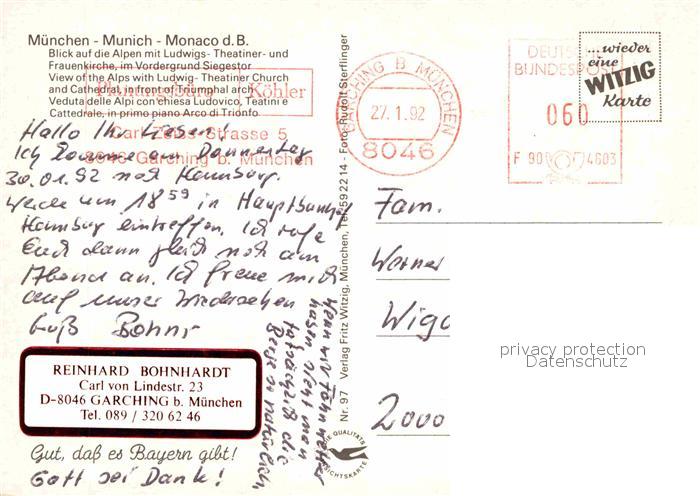 München - Munich - Monaco d. B.
Blick auf die Alpen mit Ludwigs- Theatiner- und
Frauenkirche, im Vordergrund Siegestor
View of the Alps with Ludwig- Theatiner Church
and Cathedral, in front of triumphal arch
Veduta delle Alpi con chiesa Ludovico, Teatini e
Cattedrale, in primo piano Arco di Trionfo
Planungsbüro Köhler
Carl-Zeiss-Strasse 5
8046 Garching b. München
GARCHING B MÜNCHEN
27.1.92
8046
DEUTSCHE
BUNDESPOST
060
F 90 4603
...wieder
eine
WITZIG
Karte
Hallo Ihr Lieben,
Ich komme am Donnerstag
30.01.92 nach Hamburg.
Werde um 18 59 in Hauptbahnhof
Hamburg eintreffen. Ich rufe
Euch dann gleich noch am
Abend an. Ich freue mich
auf unser Wiedersehen
Gruß
Wenn wir Föhnwetter
haben sieht man
tatsächlich die
Berge so natürlich,
REINHARD BOHNHARDT
Carl von Lindestr. 23
D-8046 GARCHING b. München
Tel. 089 / 320 62 46
Gut, daß es Bayern gibt!
Gott sei Dank!
Nr. 97 Verlag Fritz Witzig, München, Tel. 592214 - Foto Rudolf Sterflinger
Fam.
Werner
2000
privacy protection
Datenschutz